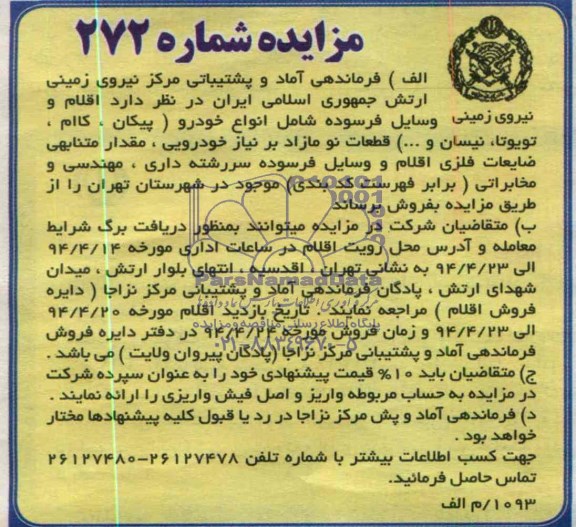 مزایده شماره ۲۷۲
نیروی زمینی
الف ) فرماندهی آماد و پشتیباتی مرکز نیروی زمینی
ارتش جمهوری اسلامی ایران در نظر دارد اقلام و
وسایل فرسوده شامل انواع خودرو ( پیکان ، کاام ،
تویوتا، نیسان و ...) قطعات نو مازاد بر نیاز خودرویی ، مقدار متنابهی
ضایعات فلزی اقلام و وسایل فرسوده سررشته داری ، مهندسی و
مخابراتی ( برابر فهرست کد بندی) موجود در شهرستان تهران را از
طریق مزایده بفروش برساند
ب) متقاضیان شرکت در مزایده میتوانند بمنظور دریافت برگ شرایط
معامله و آدرس محل رویت اقلام در ساعات اداری مورخه ۹۴/۴/۱۴
الی ۹۴/۴/۲۳ به نشانی تهران ، اقدسیه ، انتهای بلوار ارتش ، میدان
شهدای ارتش ، پادگان فرماندهی آماد و پشتیبانی مرکز نزاجا ( دایره
فروش اقلام ) مراجعه نمایند . تاریخ بازدید اقلام مورخه ۹۴/۴/۲۰
الی ۹۴/۴/۲۳ و زمان فروش مورخه ۹۴/۴/۲۴ در دفتر دایره فروش
فرماندهی آماد و پشتیبانی مرکز نزاجا (پادگان پیروان ولایت ) می باشد .
ج) متقاضیان باید ۱۰% قیمت پیشنهادی خود را به عنوان سپرده شرکت
در مزایده به حساب مربوطه واریز و اصل فیش واریزی را ارائه نمایند .
د) فرماندهی آماد و پش مرکز نزاجا در رد یا قبول کلیه پیشنهادها مختار
خواهد بود .
جهت کسب اطلاعات بیشتر با شماره تلفن ۲۶۱۲۷۴۷۸-۲۶۱۲۷۴۸۰
تماس حاصل فرمائید.
۱۰۹۳/م الف
ParsNamadData
پایگاه اطلاع رسانی مناقصه و مزایده
۰۲۱-۸۸۳۴۹۶۷۰-۵